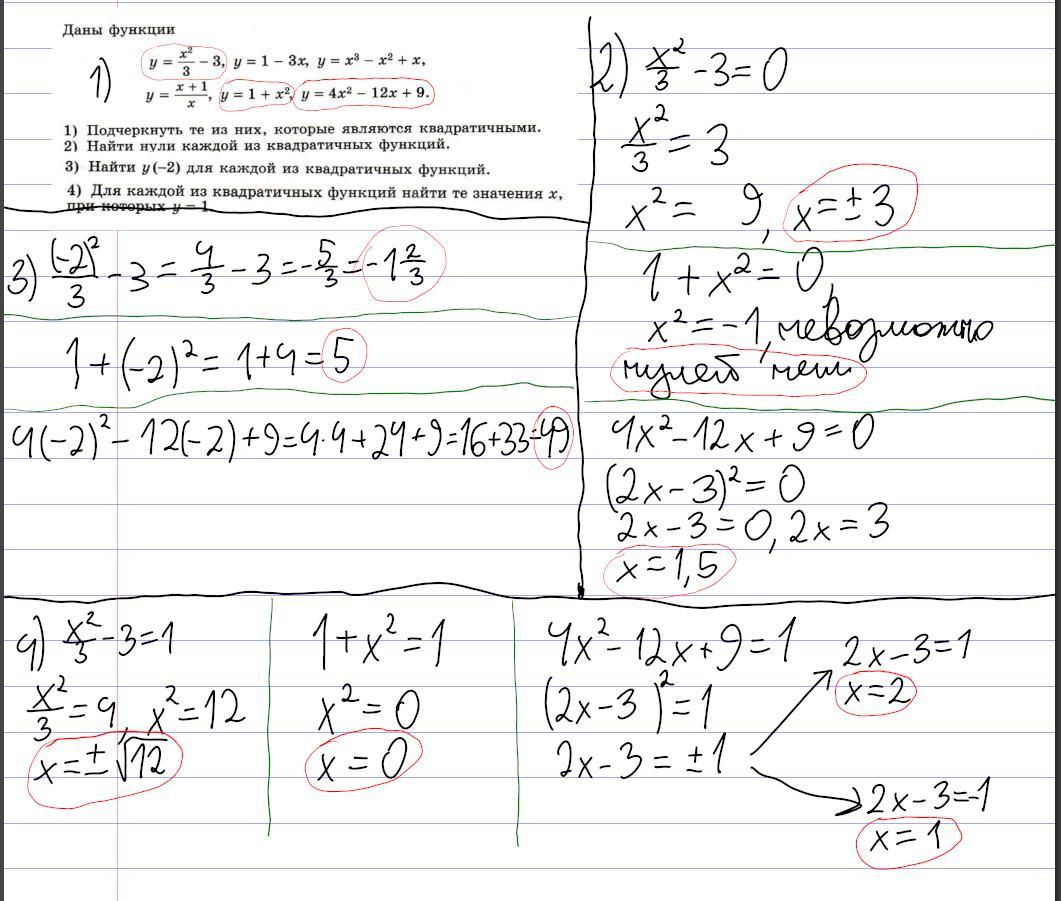 Даны функции
1) y = x²/3 − 3, y = 1 − 3x, y = x³ − x² + x,
y = (x + 1)/x, y = 1 + x², y = 4x² − 12x + 9.
1) Подчеркнуть те из них, которые являются квадратичными.
2) Найти нули каждой из квадратичных функций.
3) Найти y(−2) для каждой из квадратичных функций.
4) Для каждой из квадратичных функций найти те значения x,
при которых y = 1.
2) x²/3 - 3 = 0
x²/3 = 3
x² = 9, x = ± 3
1 + x² = 0,
x² = -1, невозможно
нулей нет
4x² - 12x + 9 = 0
(2x - 3)² = 0
2x - 3 = 0, 2x = 3
x = 1,5
3) (-2)²/3 - 3 = 4/3 - 3 = -5/3 = -1 2/3
1 + (-2)² = 1 + 4 = 5
4(-2)² - 12(-2) + 9 = 4·4 + 24 + 9 = 16 + 33 = 49
4) x²/3 - 3 = 1
x²/3 = 4, x² = 12
x = ± √12
1 + x² = 1
x² = 0
x = 0
4x² - 12x + 9 = 1
(2x - 3)² = 1
2x - 3 = ± 1
2x - 3 = 1
x = 2
2x - 3 = -1
x = 1